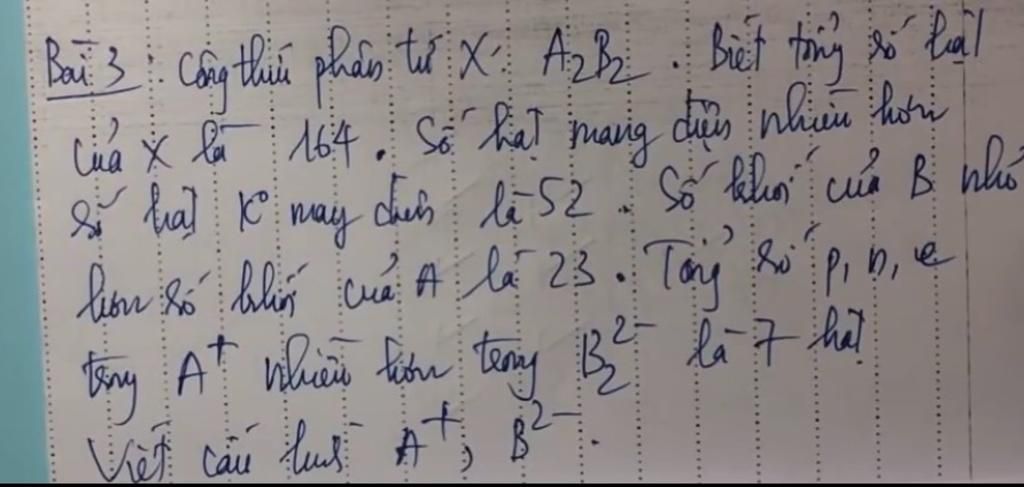 Bài 3: Công thức phân tử X: A₂B₂. Biết tổng số hạt
của X là 164. Số hạt mang điện nhiều hơn
số hạt k° mang điện là 52. Số khối của B nhỏ
hơn số khối của A là 23. Tổng số p, n, e
trong A⁺ nhiều hơn trong B₂²⁻ là 7 hạt
Viết cấu hình A⁺, B²⁻.